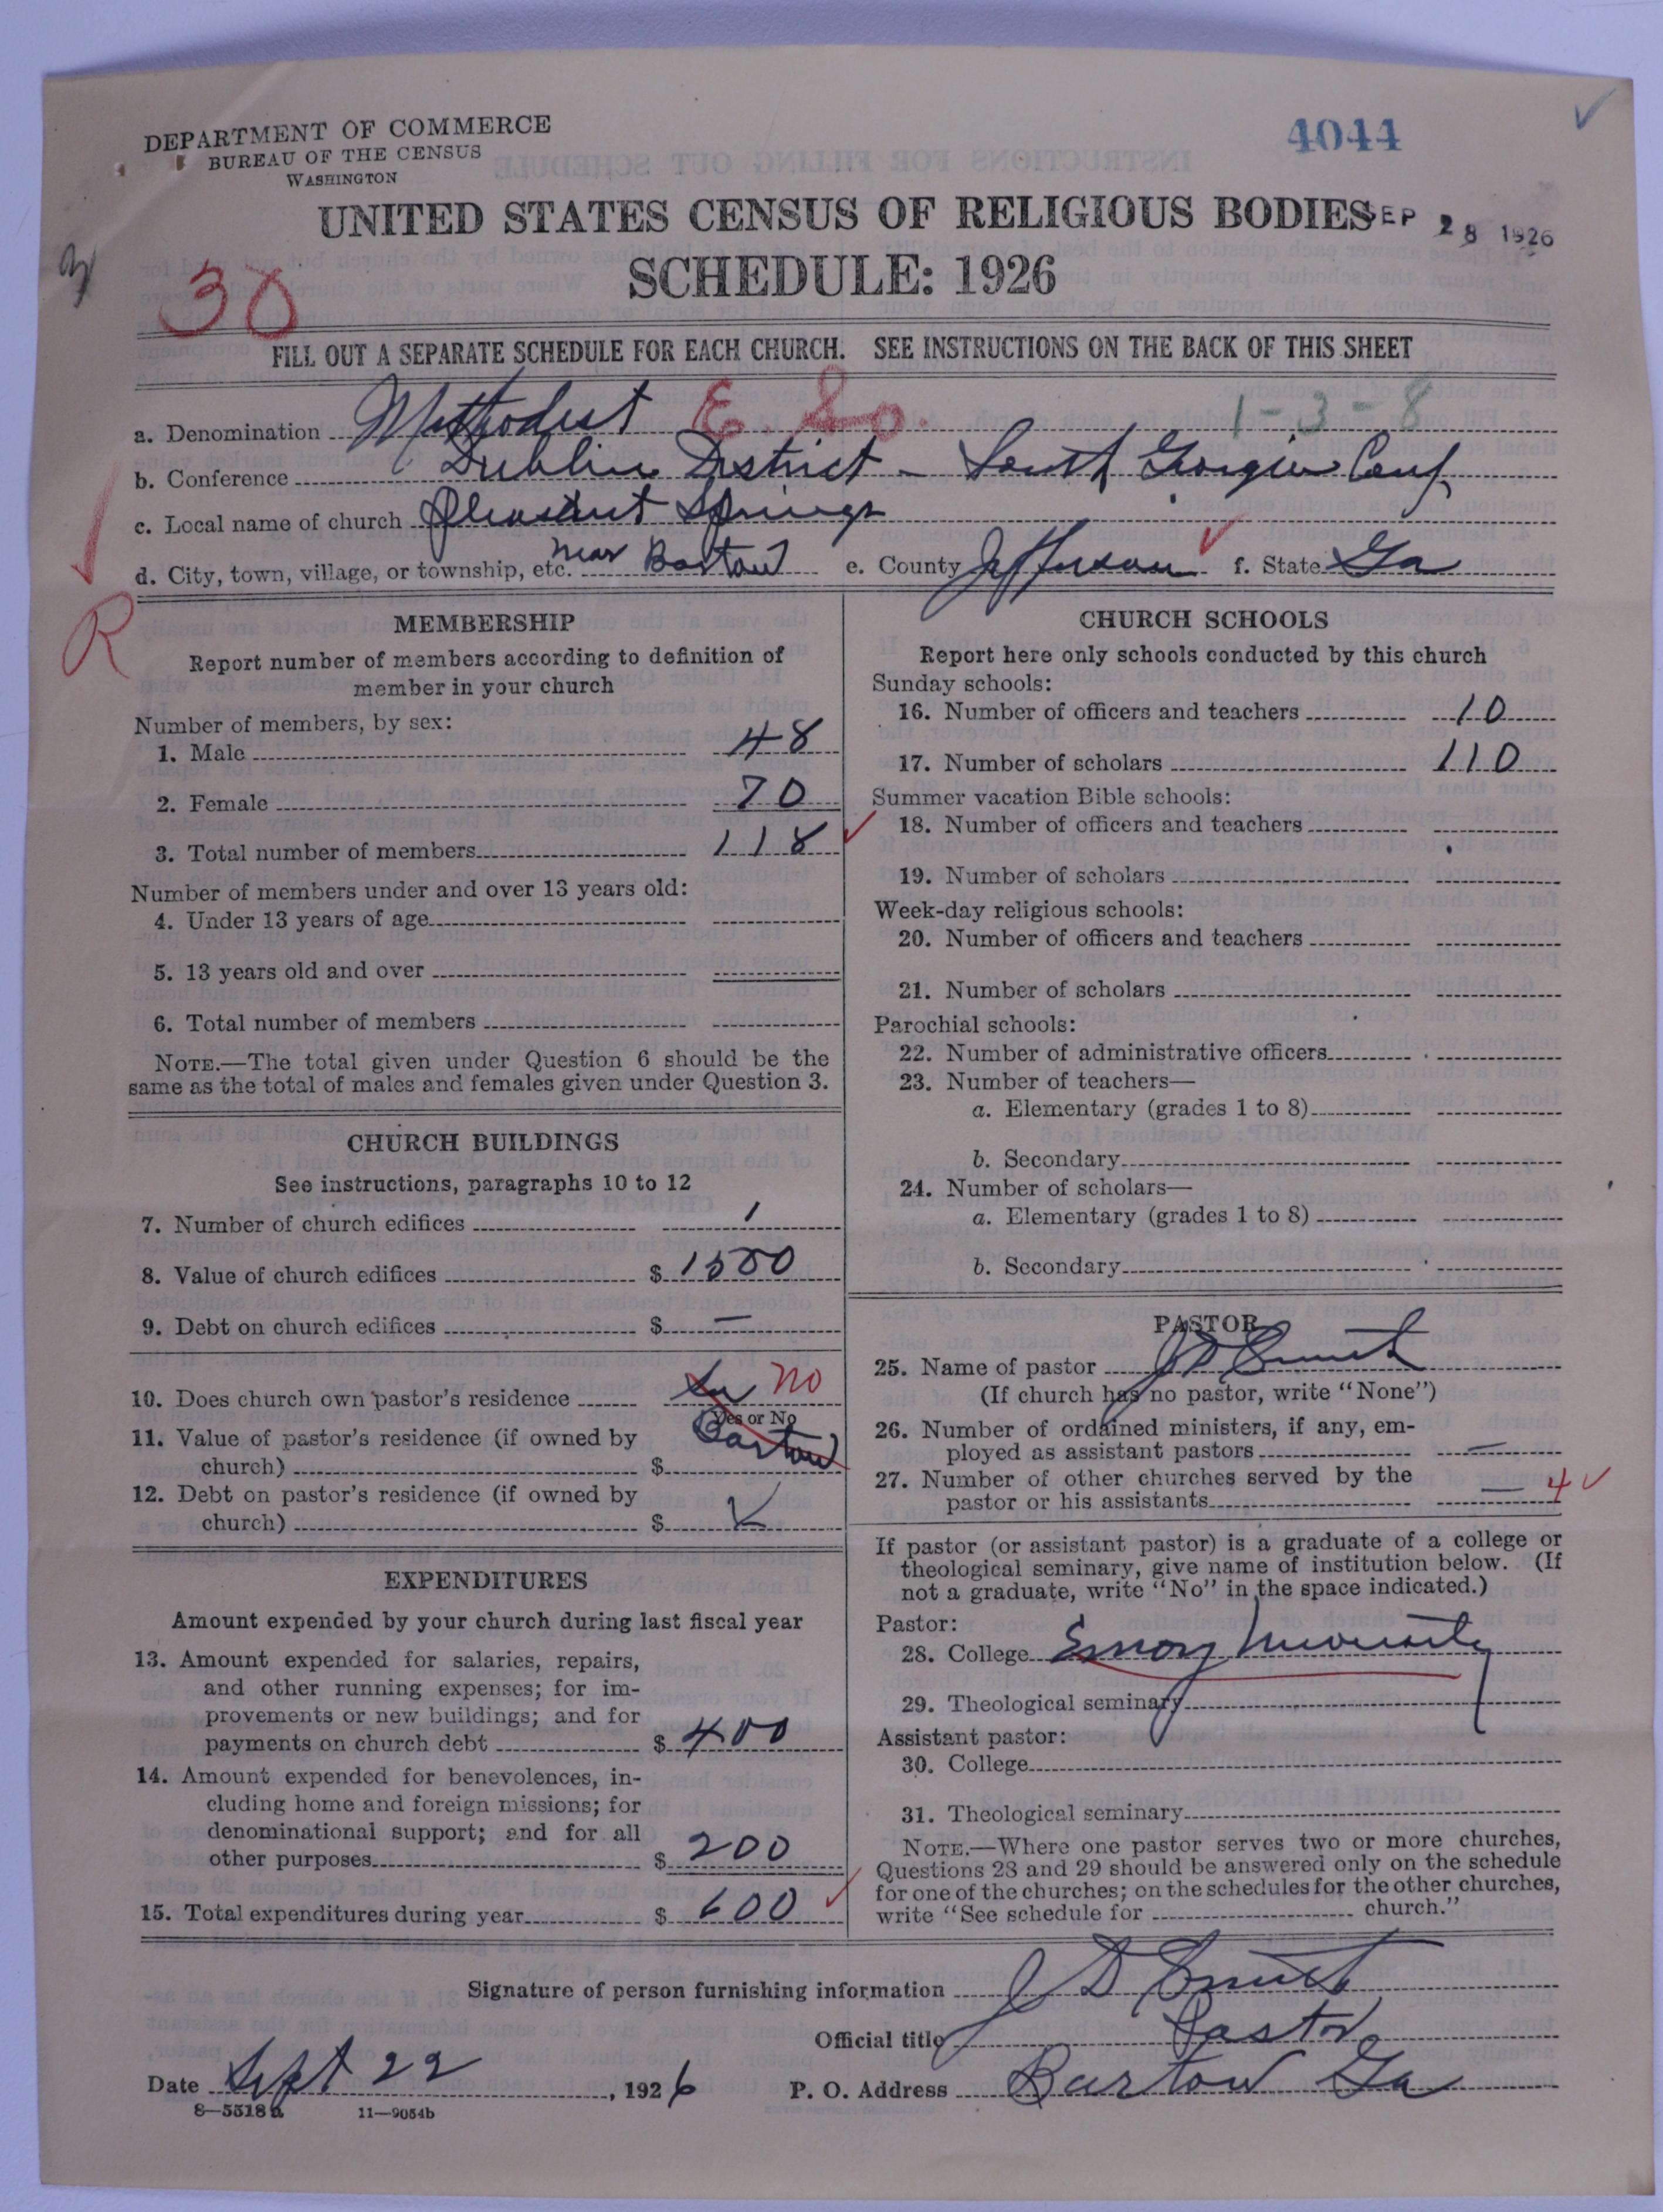 DEPARTMENT OF COMMERCE
BUREAU OF THE CENSUS
WASHINGTON
4044
UNITED STATES CENSUS OF RELIGIOUS BODIES
SEP 28 1926
SCHEDULE: 1926
30
FILL OUT A SEPARATE SCHEDULE FOR EACH CHURCH. SEE INSTRUCTIONS ON THE BACK OF THIS SHEET
a. Denomination Methodist E. So. 1-3-8
b. Conference Dublin District - South Georgia Conf
c. Local name of church Pleasant Springs
d. City, town, village, or township, etc. near Bartow e. County Jefferson f. State Ga
R
MEMBERSHIP
Report number of members according to definition of
member in your church
Number of members, by sex:
1. Male 48
2. Female 70
3. Total number of members 118
Number of members under and over 13 years old:
4. Under 13 years of age
5. 13 years old and over
6. Total number of members
NOTE.—The total given under Question 6 should be the
same as the total of males and females given under Question 3.
CHURCH BUILDINGS
See instructions, paragraphs 10 to 12
7. Number of church edifices 1
8. Value of church edifices $ 1500
9. Debt on church edifices $ —
10. Does church own pastor's residence no
Yes or No
11. Value of pastor's residence (if owned by
church) $ Bartow
12. Debt on pastor's residence (if owned by
church) $
EXPENDITURES
Amount expended by your church during last fiscal year
13. Amount expended for salaries, repairs,
and other running expenses; for im-
provements or new buildings; and for
payments on church debt $ 400
14. Amount expended for benevolences, in-
cluding home and foreign missions; for
denominational support; and for all
other purposes $ 200
15. Total expenditures during year $ 600
CHURCH SCHOOLS
Report here only schools conducted by this church
Sunday schools:
16. Number of officers and teachers 10
17. Number of scholars 110
Summer vacation Bible schools:
18. Number of officers and teachers
19. Number of scholars
Week-day religious schools:
20. Number of officers and teachers
21. Number of scholars
Parochial schools:
22. Number of administrative officers
23. Number of teachers—
a. Elementary (grades 1 to 8)
b. Secondary
24. Number of scholars—
a. Elementary (grades 1 to 8)
b. Secondary
PASTOR
25. Name of pastor J D Smith
(If church has no pastor, write "None")
26. Number of ordained ministers, if any, em-
ployed as assistant pastors —
27. Number of other churches served by the
pastor or his assistants — 4
If pastor (or assistant pastor) is a graduate of a college or
theological seminary, give name of institution below. (If
not a graduate, write "No" in the space indicated.)
Pastor:
28. College Emory University
29. Theological seminary
Assistant pastor:
30. College
31. Theological seminary
NOTE.—Where one pastor serves two or more churches,
Questions 28 and 29 should be answered only on the schedule
for one of the churches; on the schedules for the other churches,
write "See schedule for church."
Signature of person furnishing information J D Smith
Official title Pastor
Date Sept 22, 1926 P. O. Address Bartow Ga
8—5518a 11—9054b